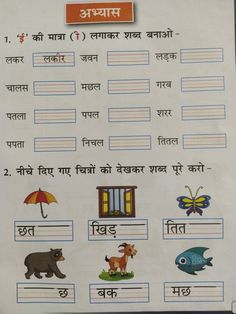 अभ्यास
1. 'ई' की मात्रा ( ी ) लगाकर शब्द बनाओ -
लकर लकीर जवन लड़क
चालस मछल गरब
पतला पपल शरर
पपता निचल तितल
2. नीचे दिए गए चित्रों को देखकर शब्द पूरे करो -
छत खिड़ तित
छ बक मछ